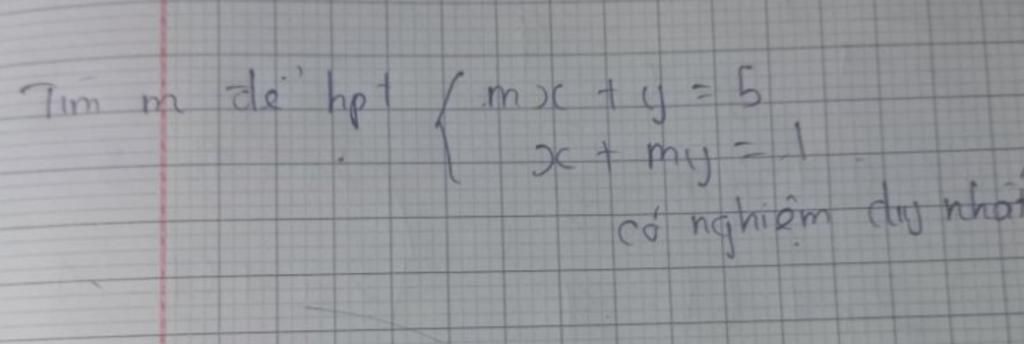 Tìm m để hpt { mx + y = 5
x + my = 1
có nghiệm duy nhất